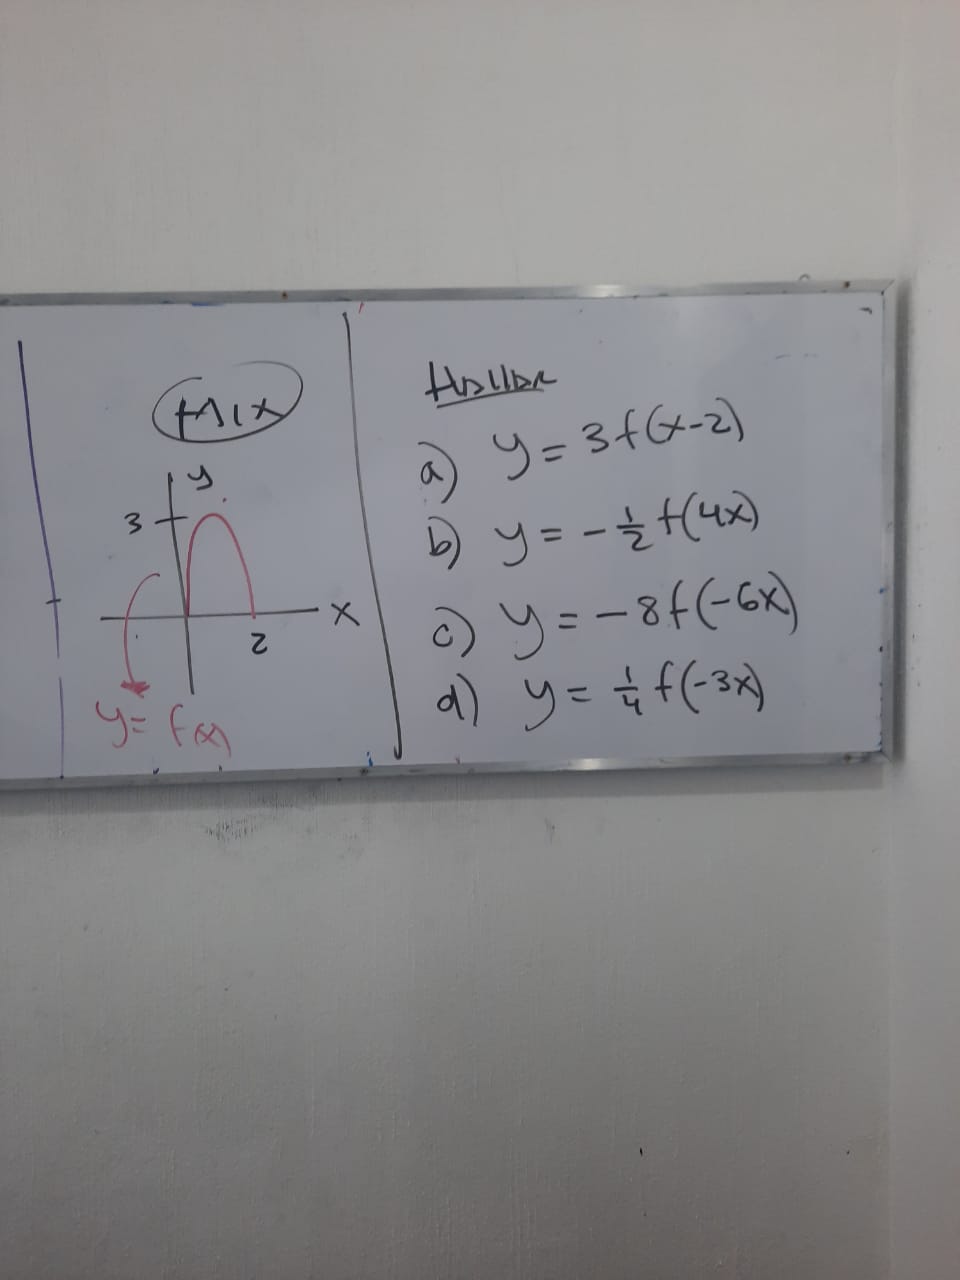 MIX
y
3
x
2
y = f(x)
Hallar
a) y = 3f(x-2)
b) y = -1/2 f(4x)
c) y = -8f(-6x)
d) y = 1/4 f(-3x)